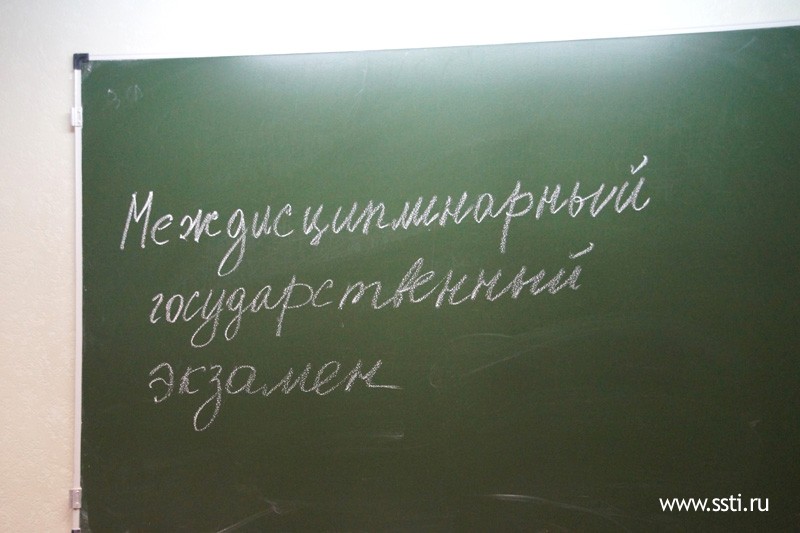 Междисциплинарный
государственный
экзамен
www.ssti.ru